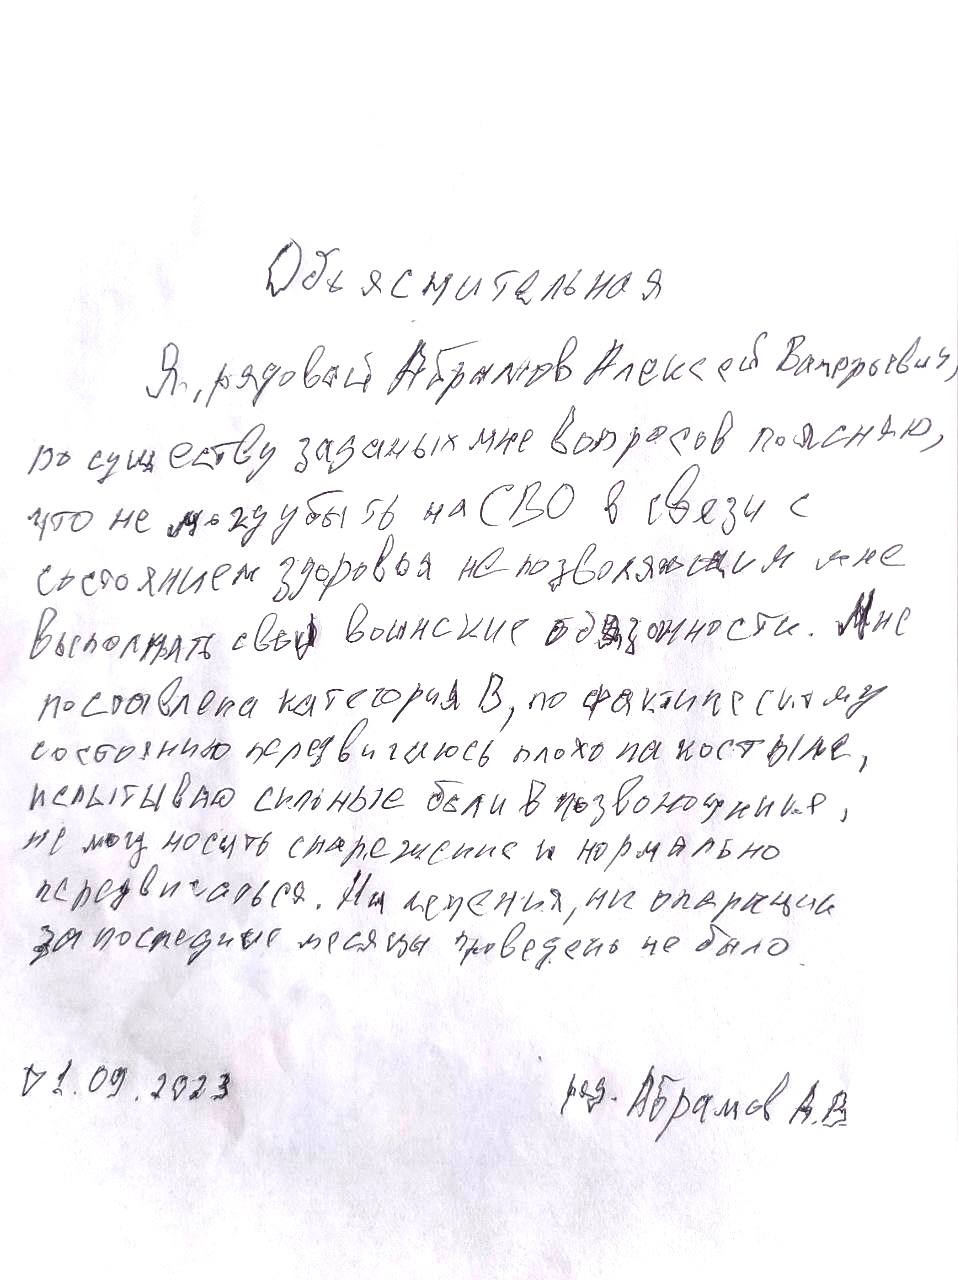 Объяснительная
Я, рядовой Абрамов Алексей Валерьевич,
по существу заданых мне вопросов поясняю,
что не могу убыть на СВО в связи с
состоянием здоровья не позволяющим мне
выполнять свои воинские обязонности. Мне
поставлена категория В, по фактическому
состоянию передвигаюсь плохо на костыле,
испытываю сильные боли в позвоночнике,
не могу носить снаряжение и нормально
передвигаться. Ни лечения, ни операции
за последние месяцы проведено не было
01.09.2023
ряд. Абрамов А.В